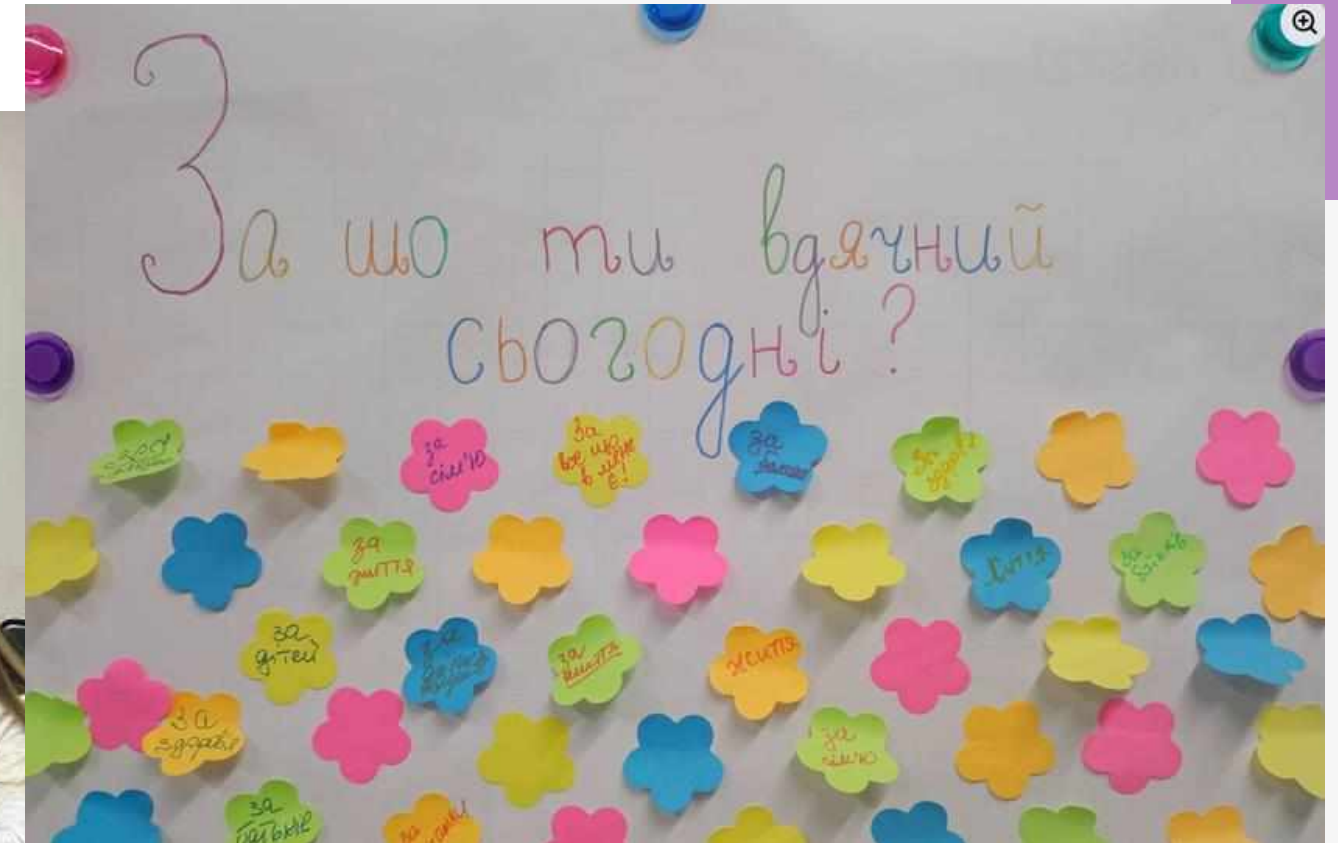 За що ти вдячний
сьогодні?
за
сім'ю
За
все що
в мене
є!
за
за
здоров'я
за
життя
життя
за
батьків
за
дітей
за
за
життя
життя
за
здоров'я
за
сім'ю
за
батьків
за